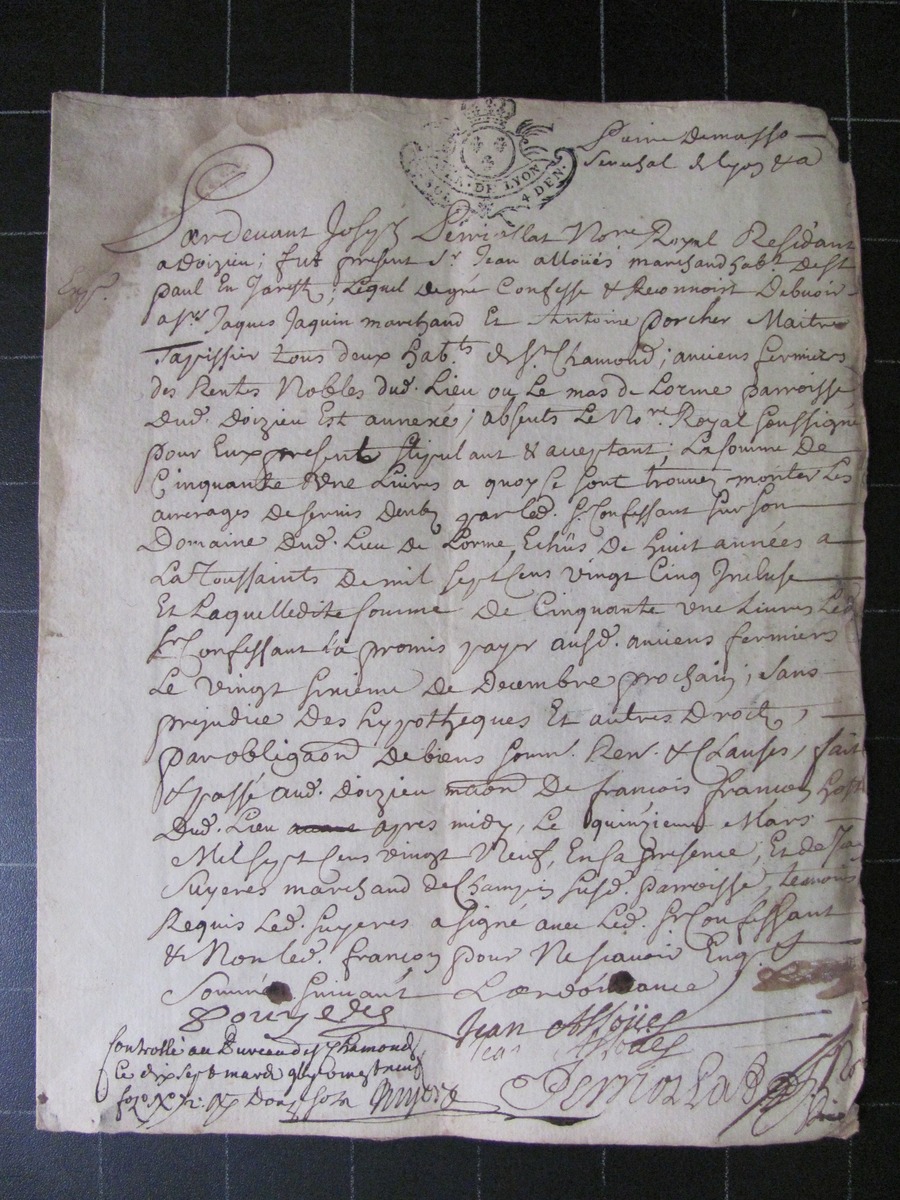 GEN. DE LYON
4 DEN.
Senechal de Lyon &a
Pardevant Joseph Perricelat Nore Royal Residant
a Doizieu; fut present Sr. Jean alloüés marchand habt. de St
paul En Jarest, Lequel de gré Confesse & Reconnoist Debvoir
a srs Jaques Jaquin marchand Et Antoine porcher Maitre
Tapissier tous deux habts. de St. Chamond; anciens fermiers
des Rentes Nobles dud. Lieu ou Le mas de Lorme parroisse
dud. doizieu Est annexé; absents Le Nore. Royal soussigné
pour Eux present stipulant & acceptant; La somme de
Cinquante Une Livres a quoy se sont trouvez monter Les
arrerages de servis deubs par led. Sr. Confessant sur son
Domaine dud. Lieu de Lorme Echûs de huit années a
La Toussaints de mil sept Cens vingt Cinq Incluse
Et Laquelledite somme de Cinquante une Livres Led.
Sr. Confessant a promis payer ausd. anciens fermiers
Le vingt de Decembre prochain; sans
prejudice des hypotheques Et autres Droits,
par obligaõn de biens soum. Ren. & Clauses, fait
& passé aud. doizieu maõn de françois françon hoste
dud. Lieu apres midy, Le quinzieme Mars
Mil sept Cens vingt Neuf, En sa presence, Et de
Suyeres marchand de susd. parroisse, temoins
Requis Led. Suyeres a signé avec Led. Sr. Confessant
& Non led. françon pour Ne scavoir Enqt. &
Sommé suivant L'ordonnance
Jean Alloües
Controllé au Bureau de St Chamond
Le dix sept mars
Perricelat